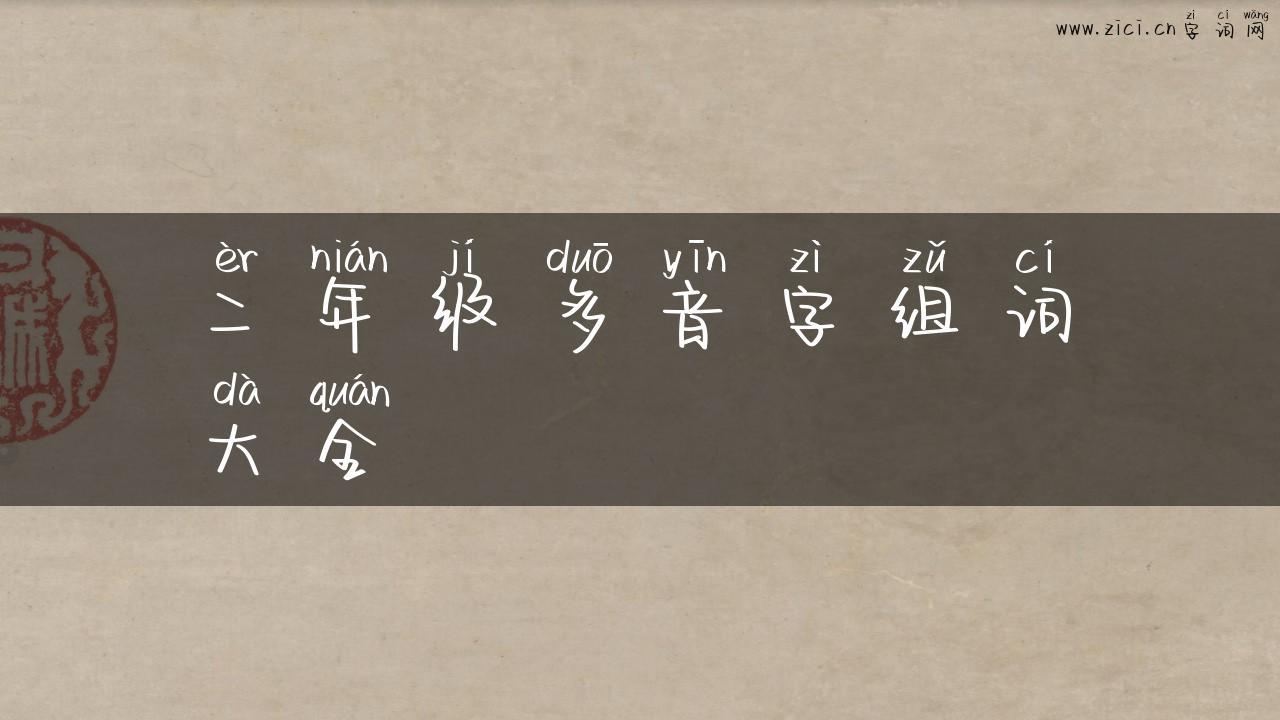 zì cí wǎng
www.zici.cn 字词网
èr nián jí duō yīn zì zǔ cí
二年级多音字组词
dà quán
大全